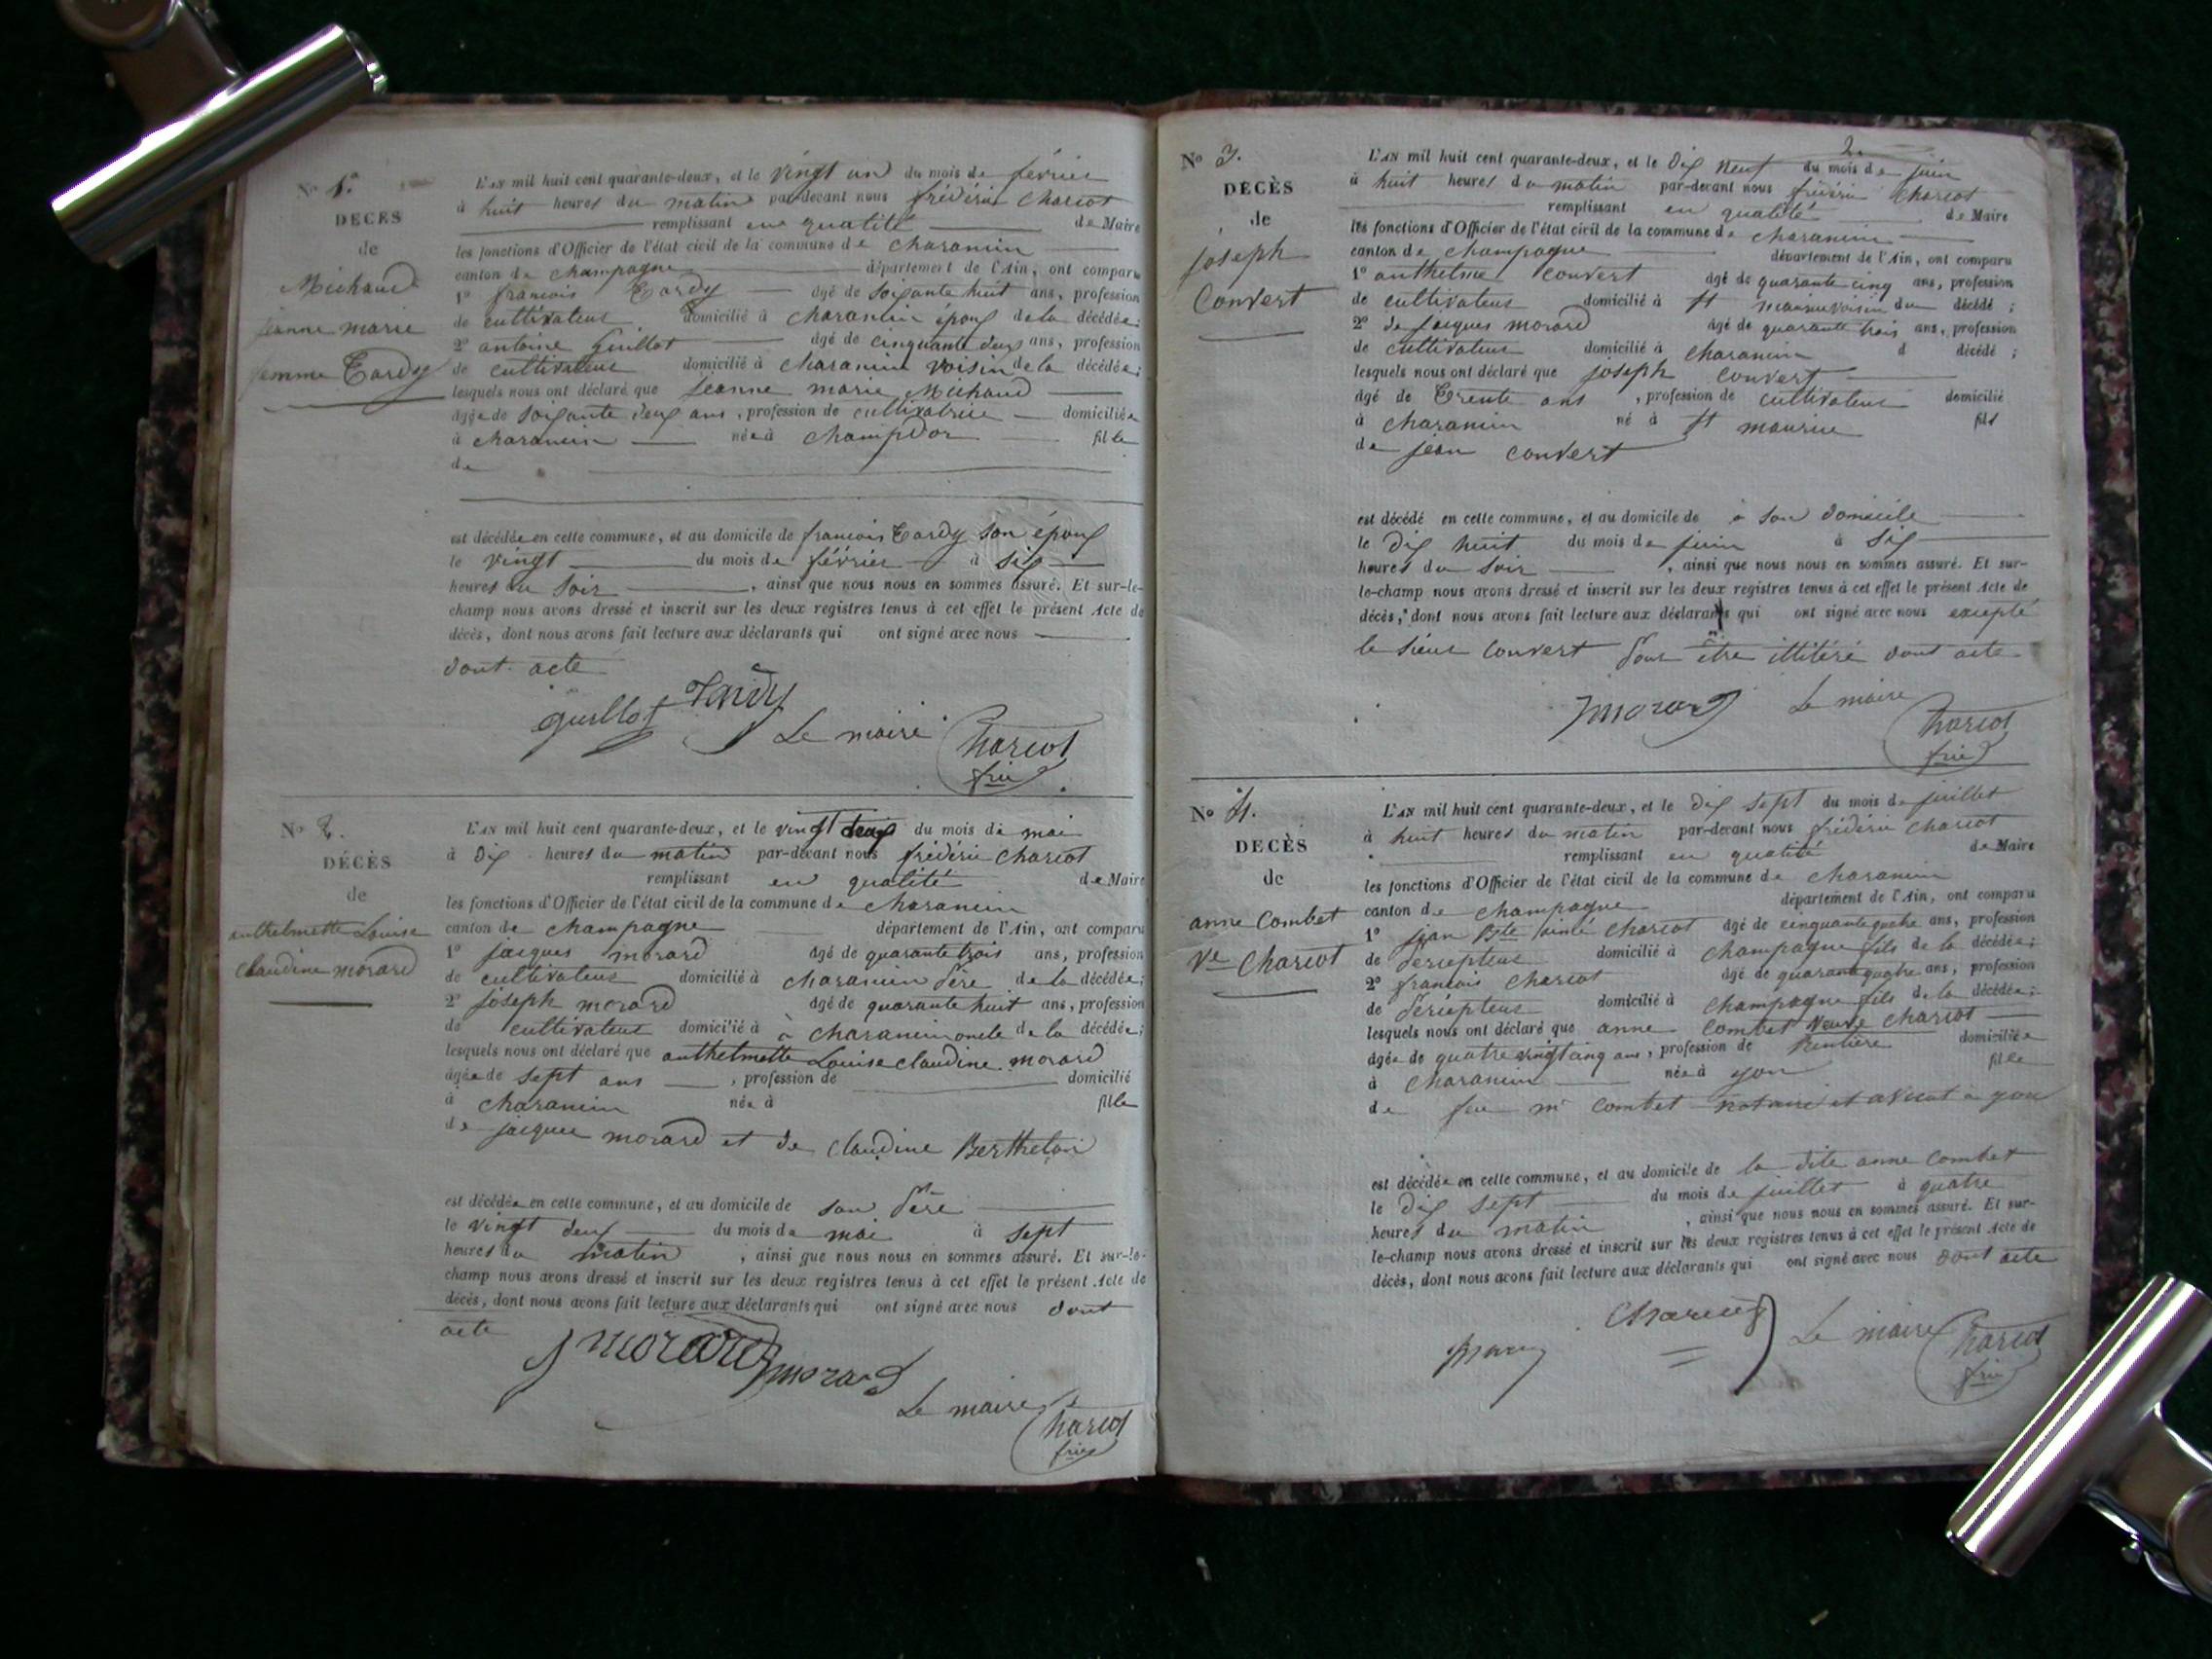 N° 1.
DÉCÈS
de
Michaud
jeanne marie
femme Tardy
L'AN mil huit cent quarante-deux, et le vingt un du mois de février
à huit heures du matin par-devant nous frédéric Chariot
remplissant en qualité de Maire
les fonctions d'Officier de l'état civil de la commune de charancin
canton de champagne département de l'Ain, ont comparu
1° francois Tardy âgé de soixante huit ans, profession
de cultivateur domicilié à charancin époux de la décédée;
2° antoine Guillot âgé de cinquante deux ans, profession
de cultivateur domicilié à charancin voisin de la décédée;
lesquels nous ont déclaré que jeanne marie Michaud
âgée de soixante deux ans, profession de cultivatrice domiciliée
à charancin née à champdor fille
de
est décédée en cette commune, et au domicile de francois Tardy son époux
le vingt du mois de février à six
heures du soir, ainsi que nous nous en sommes assuré. Et sur-le-
champ nous avons dressé et inscrit sur les deux registres tenus à cet effet le présent Acte de
décès, dont nous avons fait lecture aux déclarants qui ont signé avec nous
dont acte
guillot Tardy Le maire Chariot
fric
N° 2.
DÉCÈS
de
anthelmette Louise
claudine morard
L'AN mil huit cent quarante-deux, et le vingt deux du mois de mai
à dix heures du matin par-devant nous frédéric Chariot
remplissant en qualité de Maire
les fonctions d'Officier de l'état civil de la commune de charancin
canton de champagne département de l'Ain, ont comparu
1° jacques morard âgé de quarante trois ans, profession
de cultivateur domicilié à charancin père de la décédée;
2° joseph morard âgé de quarante huit ans, profession
de cultivateur domicilié à à charancin oncle de la décédée;
lesquels nous ont déclaré que anthelmette Louise claudine morard
âgée de sept ans, profession de domicilié
à charancin née à fille
de jacques morard et de claudine Berthelon
est décédée en cette commune, et au domicile de son père
le vingt deux du mois de mai à sept
heures du matin, ainsi que nous nous en sommes assuré. Et sur-le-
champ nous avons dressé et inscrit sur les deux registres tenus à cet effet le présent Acte de
décès, dont nous avons fait lecture aux déclarants qui ont signé avec nous dont
acte
J morard morard
Le maire Chariot
fric
2.
N° 3.
DÉCÈS
de
joseph
Convert
L'AN mil huit cent quarante-deux, et le dix neuf du mois de juin
à huit heures du matin par-devant nous frédéric Chariot
remplissant en qualité de Maire
les fonctions d'Officier de l'état civil de la commune de charancin
canton de champagne département de l'Ain, ont comparu
1° anthelme convert âgé de quarante cinq ans, profession
de cultivateur domicilié à st maurice voisin du décédé;
2° de jacques morard âgé de quarante trois ans, profession
de cultivateur domicilié à charancin d décédé;
lesquels nous ont déclaré que joseph convert
âgé de trente ans, profession de cultivateur domicilié
à charancin né à st maurice fils
de jean convert
est décédé en cette commune, et au domicile de à son domicile
le dix huit du mois de juin à six
heures du soir, ainsi que nous nous en sommes assuré. Et sur-
le-champ nous avons dressé et inscrit sur les deux registres tenus à cet effet le présent Acte de
décès, dont nous avons fait lecture aux déclarants qui ont signé avec nous excepté
le sieur convert pour être illitéré dont acte
morard Le maire
Chariot
fric
N° 4.
DECÈS
de
anne Combet
Ve Chariot
L'AN mil huit cent quarante-deux, et le dix sept du mois de juillet
à huit heures du matin par-devant nous frédéric chariot
remplissant en qualité de Maire
les fonctions d'Officier de l'état civil de la commune de charancin
canton de champagne département de l'Ain, ont comparu
1° jean Bte aimé chariot âgé de cinquante quatre ans, profession
de percepteur domicilié à champagne fils de la décédée;
2° francois chariot âgé de quarante quatre ans, profession
de percepteur domicilié à champagne fils de la décédée;
lesquels nous ont déclaré que anne combet veuve chariot
âgée de quatre vingt cinq ans, profession de Rentière domiciliée
à charancin née à yon fille
de feu mr combet notaire et avocat à yon
est décédée en cette commune, et au domicile de la dite anne combet
le dix sept du mois de juillet à quatre
heures du matin, ainsi que nous nous en sommes assuré. Et sur-
le-champ nous avons dressé et inscrit sur les deux registres tenus à cet effet le présent Acte de
décès, dont nous avons fait lecture aux déclarants qui ont signé avec nous dont acte
Chariot Le maire Chariot
fric